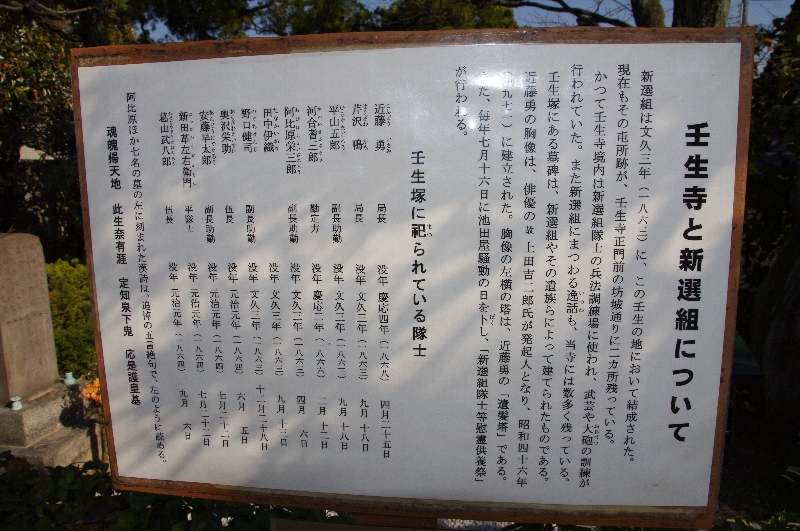 壬生寺と新選組について
新選組は文久三年（一八六三）に、この壬生の地において結成された。
現在もその屯所跡が、壬生寺正門前の坊城通りに二カ所残っている。
かつて壬生寺境内は新選組隊士の兵法訓練場に使われ、武芸や大砲の訓練が
行われていた。また新選組にまつわる逸話も、当寺には数多く残っている。
壬生塚にある墓碑は、新選組やその遺族らによって建てられたものである。
近藤勇の胸像は、俳優の故 上田吉二郎氏が発起人となり、昭和四十六年
九七一）に建立された。胸像の左横の塔は、近藤勇の「遺髪塔」である。
また、毎年七月十六日に池田屋騒動の日を卜し、「新選組隊士等慰霊供養祭」
が行われる。
壬生塚に祀られている隊士
近藤 勇 局長 没年 慶応四年（一八六八） 四月二十五日
芹沢 鴨 局長 没年 文久三年（一八六三） 九月十八日
平山五郎 副長助勤 没年 文久三年（一八六三） 九月十八日
河合耆三郎 勘定方 没年 慶応二年（一八六六） 二月十二日
阿比原栄三郎 副長助勤 没年 文久三年（一八六三） 四月 六日
田中伊織 没年 文久三年（一八六三） 九月十三日
野口健司 副長助勤 没年 文久三年（一八六三） 十二月二十八日
奥沢栄助 伍長 没年 元治元年（一八六四） 六月 五日
安藤早太郎 副長助勤 没年 元治元年（一八六四） 七月二十二日
新田革左衛門 平隊士 没年 元治元年（一八六四） 七月二十二日
葛山武八郎 伍長 没年 元治元年（一八六四） 九月 六日
阿比原ほか七名の墓の左に刻まれた漢詩は、追悼の五言絶句で、左のように読める。
魂魄帰天地 此生奈有涯 定知泉下鬼 応是護皇基